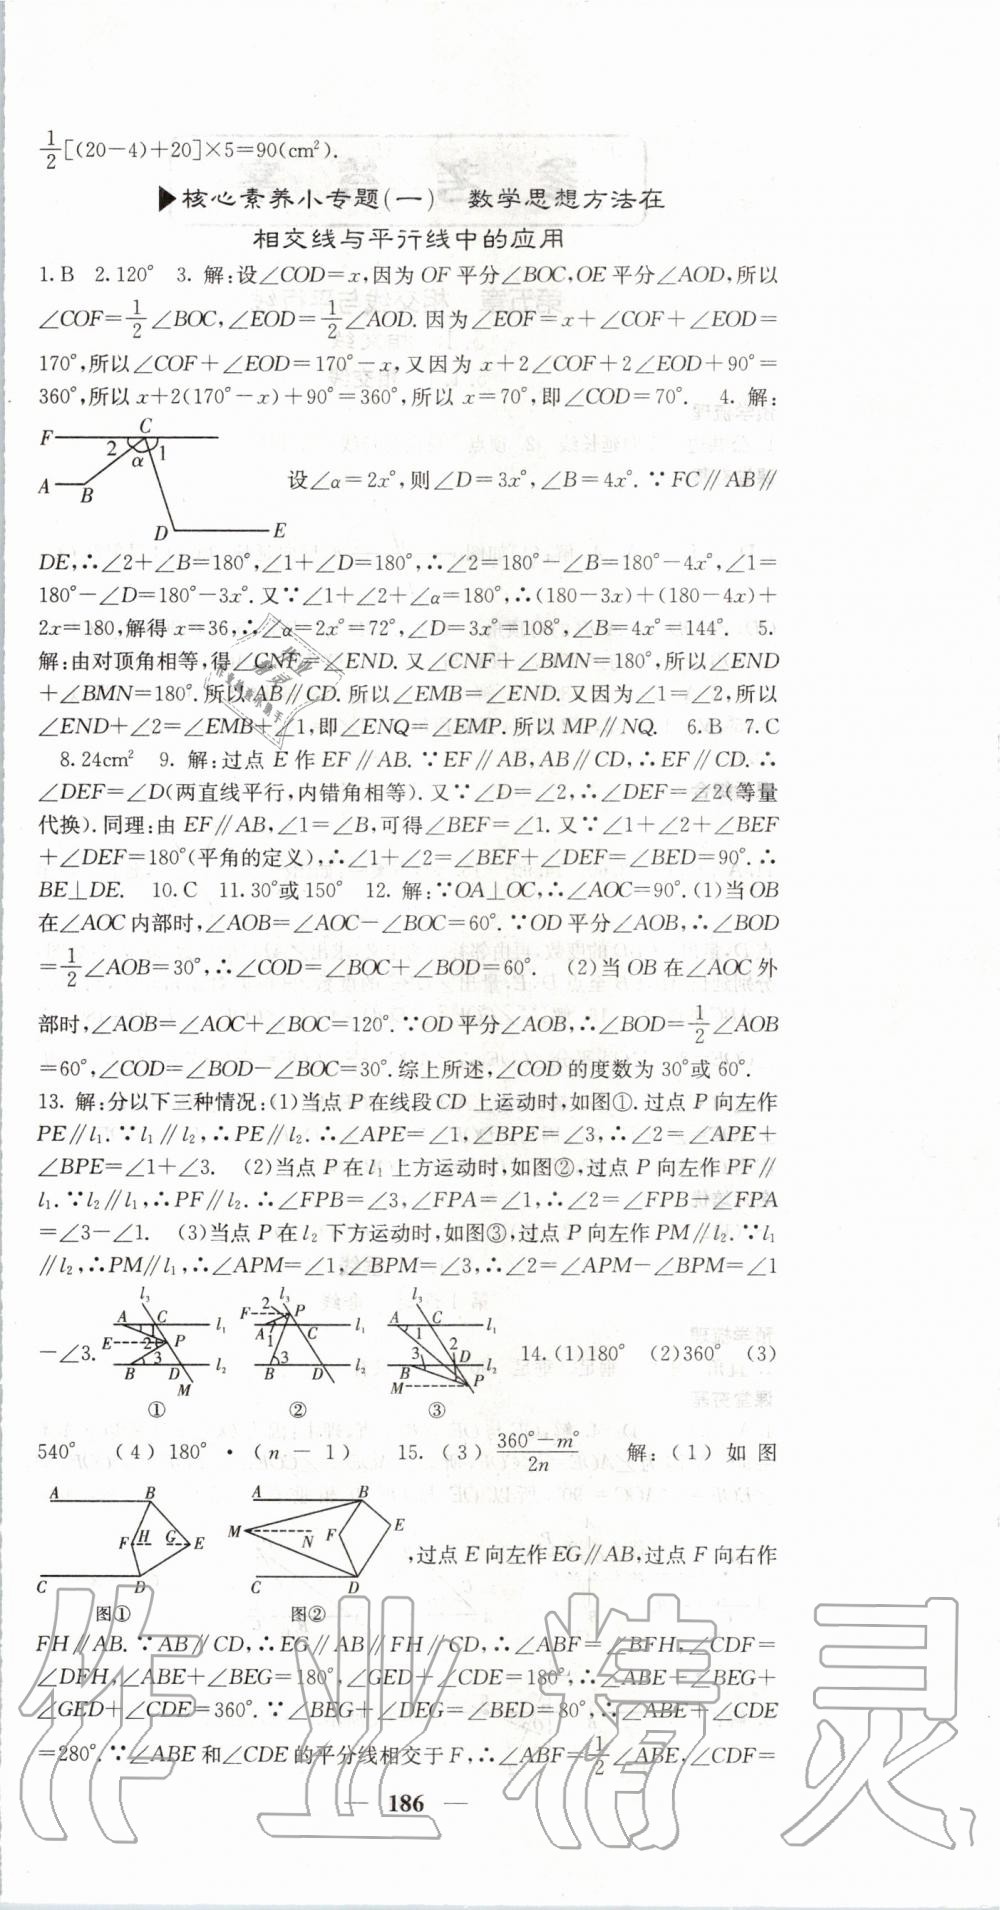 1/2[(20-4)+20]×5=90(cm²).
▶核心素养小专题(一) 数学思想方法在
相交线与平行线中的应用
1.B 2.120° 3. 解:设∠COD=x,因为 OF 平分∠BOC,OE 平分∠AOD,所以
∠COF=1/2∠BOC,∠EOD=1/2∠AOD.因为∠EOF=x+∠COF+∠EOD=
170°,所以∠COF+∠EOD=170°-x,又因为 x+2∠COF+2∠EOD+90°=
360°,所以 x+2(170°-x)+90°=360°,所以 x=70°,即∠COD=70°. 4. 解:
F C 2 α 1 A B D E
设∠α=2x°,则∠D=3x°,∠B=4x°.∵FC∥AB∥
DE,∴∠2+∠B=180°,∠1+∠D=180°,∴∠2=180°-∠B=180°-4x°,∠1=
180°-∠D=180°-3x°.又∵∠1+∠2+∠α=180°,∴(180-3x)+(180-4x)+
2x=180,解得 x=36,∴∠α=2x°=72°,∠D=3x°=108°,∠B=4x°=144°. 5.
解:由对顶角相等,得∠CNF=∠END.又∠CNF+∠BMN=180°,所以∠END
+∠BMN=180°.所以AB∥CD.所以∠EMB=∠END.又因为∠1=∠2,所以
∠END+∠2=∠EMB+∠1,即∠ENQ=∠EMP.所以 MP∥NQ. 6.B 7.C
8.24cm² 9. 解:过点 E 作 EF∥AB.∵EF∥AB,AB∥CD,∴EF∥CD.∴
∠DEF=∠D(两直线平行,内错角相等).又∵∠D=∠2,∴∠DEF=∠2(等量
代换).同理:由 EF∥AB,∠1=∠B,可得∠BEF=∠1.又∵∠1+∠2+∠BEF
+∠DEF=180°(平角的定义),∴∠1+∠2=∠BEF+∠DEF=∠BED=90°.∴
BE⊥DE. 10.C 11.30°或150° 12. 解:∵OA⊥OC,∴∠AOC=90°.(1)当 OB
在∠AOC内部时,∠AOB=∠AOC-∠BOC=60°.∵OD 平分∠AOB,∴∠BOD
=1/2∠AOB=30°,∴∠COD=∠BOC+∠BOD=60°. (2)当 OB 在∠AOC 外
部时,∠AOB=∠AOC+∠BOC=120°.∵OD平分∠AOB,∴∠BOD=1/2∠AOB
=60°,∠COD=∠BOD-∠BOC=30°.综上所述,∠COD 的度数为 30°或 60°.
13. 解:分以下三种情况:(1)当点 P 在线段CD 上运动时,如图①.过点 P 向左作
PE∥l₁.∵l₁∥l₂,∴PE∥l₂.∴∠APE=∠1,∠BPE=∠3,∴∠2=∠APE+
∠BPE=∠1+∠3. (2)当点 P 在 l₁ 上方运动时,如图②,过点 P 向左作 PF∥
l₁.∵l₂∥l₁,∴PF∥l₂.∴∠FPB=∠3,∠FPA=∠1,∴∠2=∠FPB-∠FPA
=∠3-∠1. (3)当点 P 在 l₂ 下方运动时,如图③,过点 P 向左作 PM∥l₂.∵l₁
∥l₂,∴PM∥l₁,∴∠APM=∠1,∠BPM=∠3,∴∠2=∠APM-∠BPM=∠1
-∠3.
l₃ A C 1 l₁ E 2 P 3 B D l₂ M ①
F 2 l₃ P A 1 C l₁ 3 B D l₂ ②
l₃ A C 1 l₁ 2 3 B D l₂ M P ③
14.(1)180° (2)360° (3)
540° (4) 180° · (n - 1) 15. (3) (360°-m°)/2n 解: (1) 如 图
A B F H G E C D 图①
A B M N F E C D 图②
,过点 E 向左作 EG∥AB,过点 F 向右作
FH∥AB.∵AB∥CD,∴EG∥AB∥FH∥CD,∴∠ABF=∠BFH,∠CDF=
∠DFH,∠ABE+∠BEG=180°,∠GED+∠CDE=180°,∴∠ABE+∠BEG+
∠GED+∠CDE=360°.∵∠BEG+∠DEG=∠BED=80°,∴∠ABE+∠CDE
=280°.∵∠ABE 和∠CDE 的平分线相交于 F,∴∠ABF=1/2∠ABE,∠CDF=
— 186 —
作业精灵